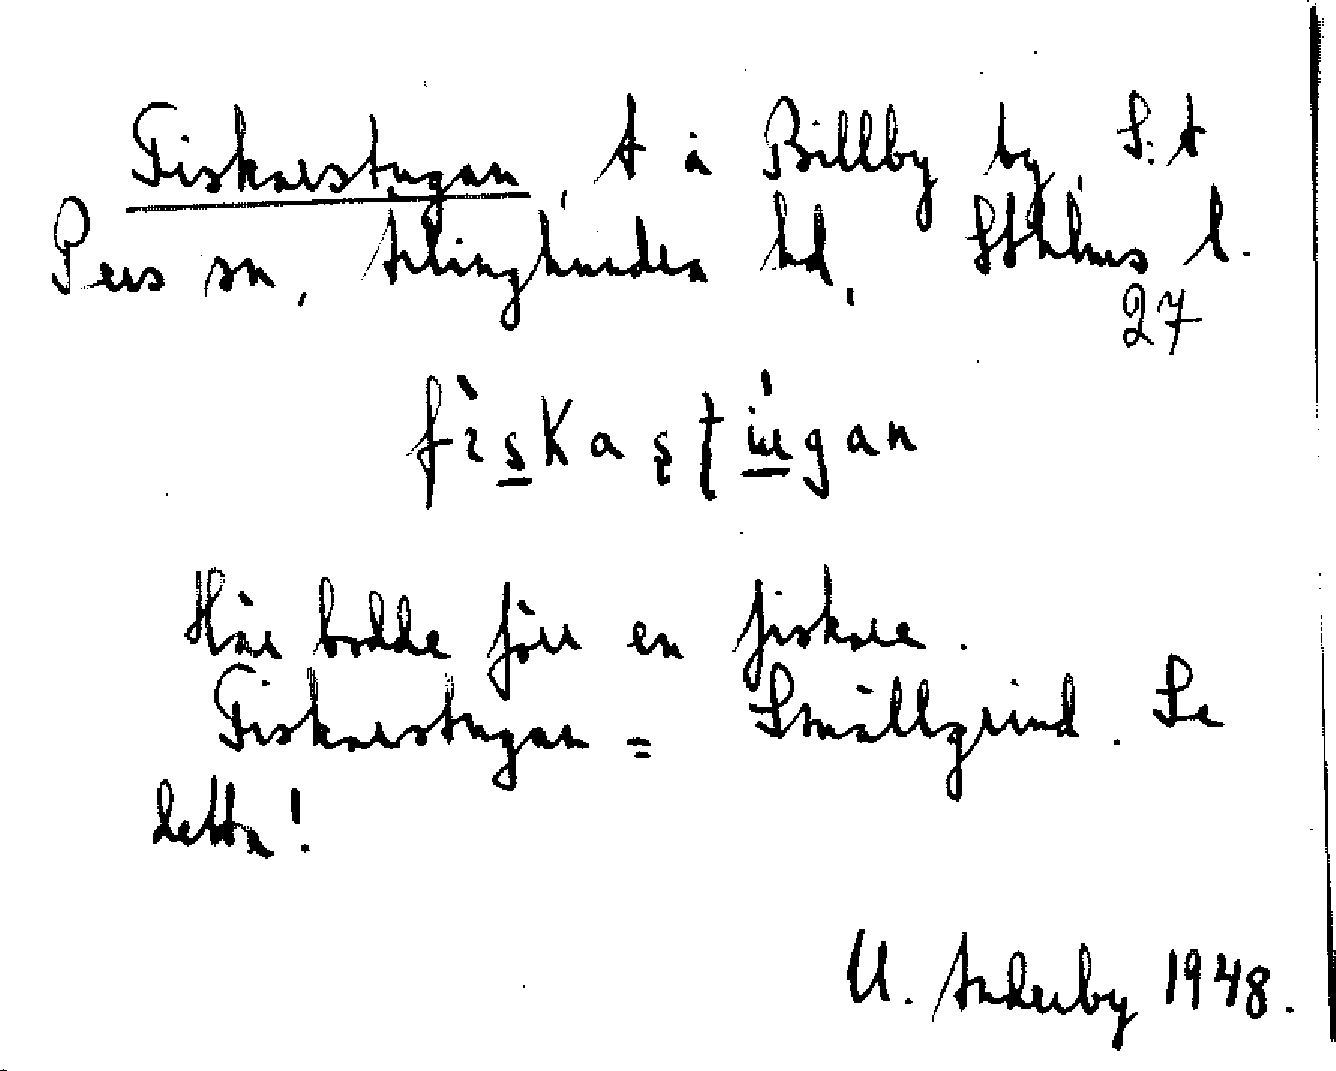 Fiskarstugan, t å Billby by, S:t
Pers sn, Ärlinghundra hd, Sthlms l.
27
fìskaştúgan
Här bodde förr en fiskare.
Fiskarstugan = Smällgrind. Se
detta!
U. Anderby 1948.